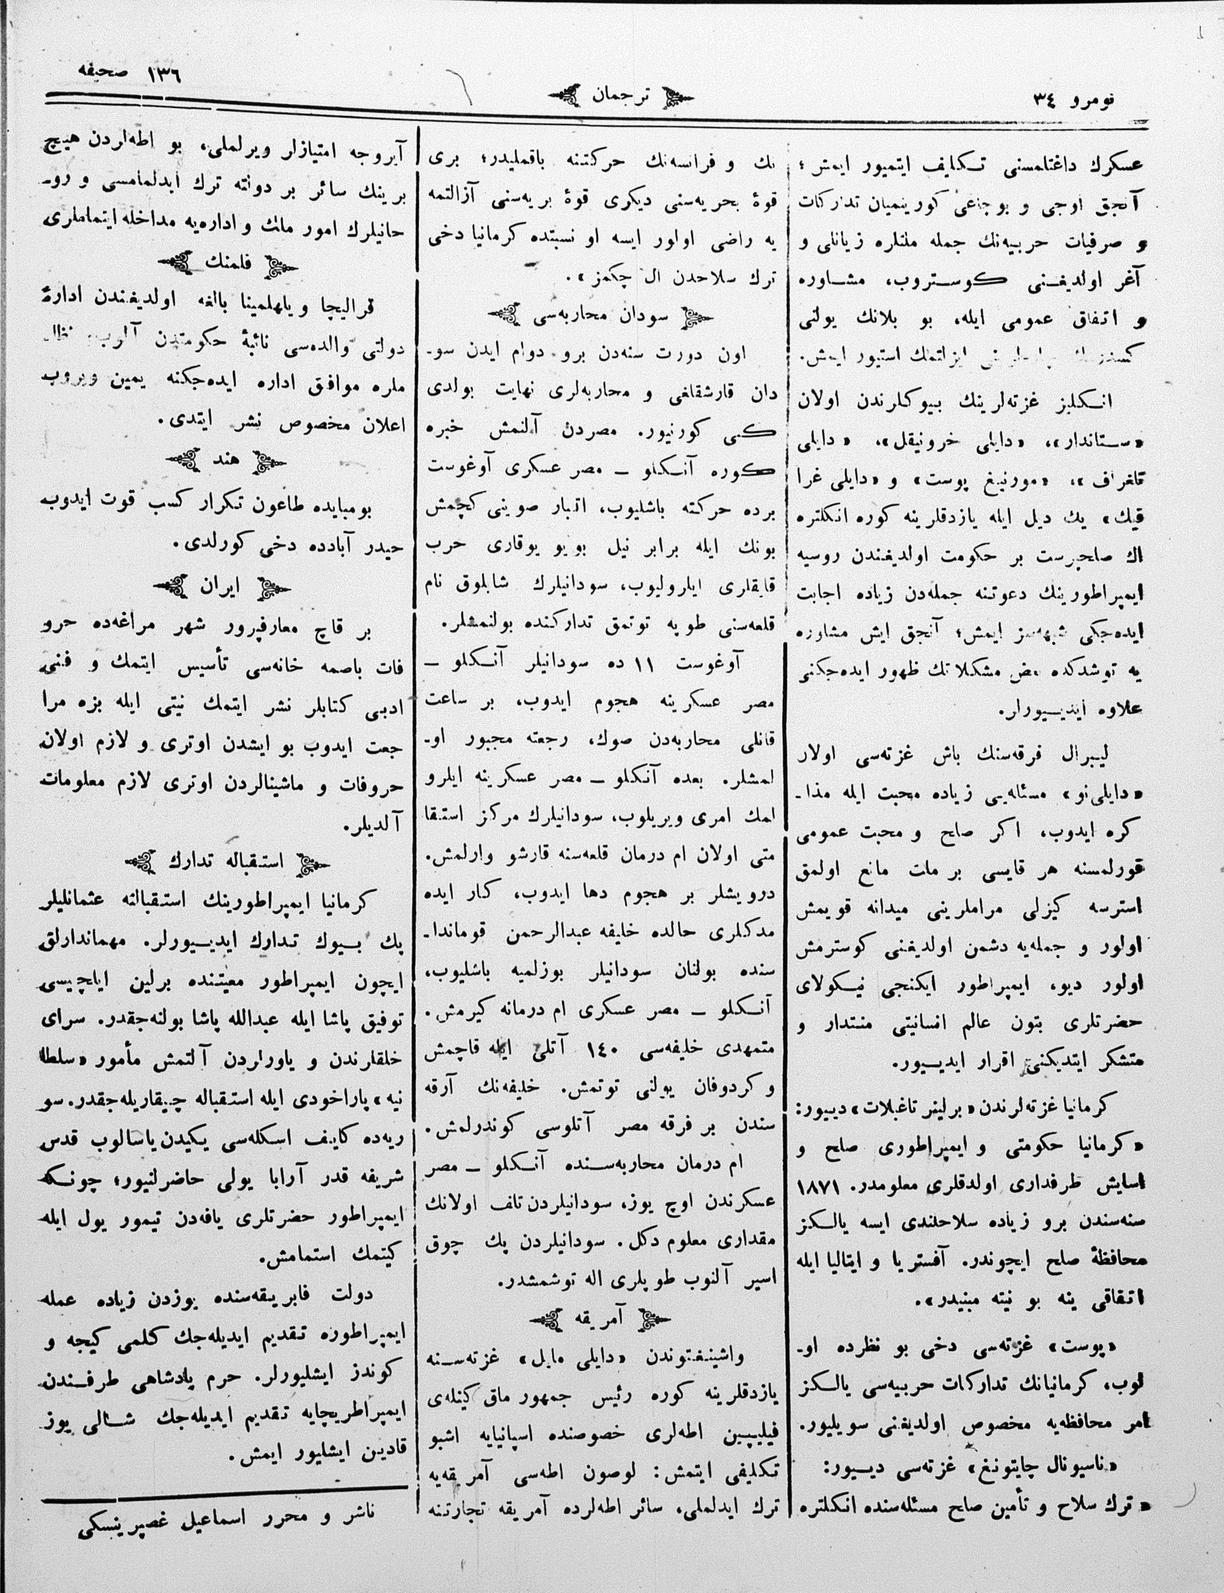 نومرو ٣٤
ترجمان
١٣٦ صحيفه
عسكرك داغتلمسنى تكليف ايتميور ايمش ؛
آنجق اوجى و بوجاغى كورينميان تداركات
و صرفيات حربيه‌نك جمله ملتلره زيانلى و
آغر اولديغنى كوستروب، مشاوره
و اتفاق عمومى ايله، بو بلانك يولنى
ايزلتمك استيور ايمش.
انكليز غزته‌لرينك بيوكلرندن اولان
«ستاندار»، «دايلى خرونيقل»، «دايلى
تلغراف»، «مورنيغ پوست» و «دايلى غرا
فيك» يك ديل ايله يازدقلرينه كوره انكلتره
اك صلحپرست بر حكومت اولديغندن روسيه
ايمپراطورينك دعوتنه جمله‌دن زياده اجابت
ايده‌جكى شبهه‌سز ايمش؛ آنجق ايش مشاوره
يه توشدكده بعض مشكلاتك ظهور ايده‌جكنى
علاوه ايديورلر.
ليبرال فرقه‌سنك باش غزته‌سى اولار
«دايلى‌نو» مسئله‌يى زياده محبت ايله مذا-
كره ايدوب، اكر صلح و محبت عمومى
قورلمسنه هر قايسى بر ملت مانع اولمق
استرسه كيزلى مراملرينى ميدانه قويمش
اولور و جمله‌يه دشمن اولديغنى كوسترمش
اولور ديو، ايمپراطور ايكنجى نيكولاى
حضرتلرى بتون عالم انسانيتى منتدار و
متشكر ايتديكنى اقرار ايديور.
كرمانيا غزته‌لرندن «برلينر تاغبلات» ديور:
«كرمانيا حكومتى و ايمپراطورى صلح و
اسايش طرفدارى اولدقلرى معلومدر. ١٨٧١
سنه‌سندن برو زياده سلاحلندى ايسه يالكز
محافظهٔ صلح ايچوندر. آفستريا و ايتاليا ايله
اتفاقى ينه بو نيته مبنيدر».
«پوست» غزته‌سى دخى بو نظرده او-
لوب، كرمانيانك تداركات حربيه‌سى يالكز
امر محافظه‌يه مخصوص اولديغنى سويليور.
«ناسيونال چايتونغ» غزته‌سى ديور:
«ترك سلاح و تأمين صلح مسئله‌سنده انكلتره
نك و فرانسه‌نك حركتنه باقمليدر؛ برى
قوهٔ بحريه‌سنى ديكرى قوهٔ بريه‌سنى آزالتمه
يه راضى اولور ايسه او نسبتده كرمانيا دخى
ترك سلاحدن ال چكمز».
سودان محاربه‌سى
اون دورت سنه‌دن برو دوام ايدن سو-
دان قارشقلغى و محاربه‌لرى نهايت بولدى
كبى كورنيور. مصردن آلنمش خبره
كوره آنكلو ــ مصر عسكرى آوغوست
برده حركته باشليوب، اتبار صوينى كچمش
بونك ايله برابر نيل بويو يوقارى حرب
قايقلرى ايلروليوب، سودانيلرك شابلوق نام
قلعه‌سنى طوپه توتمق تداركنده بولنمشلر.
آوغوست ١١ ده سودانيلر آنكلو ــ
مصر عسكرينه هجوم ايدوب، بر ساعت
قانلى محاربه‌دن صوك، رجعته مجبور او-
لمشلر. بعده آنكلو ــ مصر عسكرينه ايلرو
لمك امرى ويريلوب، سودانيلرك مركز استقا
متى اولان ام درمان قلعه‌سنه قارشو وارلمش.
درويشلر بر هجوم دها ايدوب، كار ايده
مدكلرى حالده خليفه عبدالرحمن قوماندا-
سنده بولنان سودانيلر بوزلميه باشليوب،
آنكلو ــ مصر عسكرى ام درمانه كيرمش.
متمهدى خليفه‌سى ١٤٠ آتلى ايله قاچمش
و كردوفان يولنى توتمش. خليفه‌نك آرقه
سندن بر فرقه مصر آتلوسى كوندرلمش.
ام درمان محاربه‌سنده آنكلو ــ مصر
عسكرندن اوچ يوز، سودانيلردن تلف اولانك
مقدارى معلوم دكل. سودانيلردن پك چوق
اسير آلنوب طوپلرى اله توشمشدر.
آمريقه
واشينغتوندن «دايلى مايل» غزته‌سنه
يازدقلرينه كوره رئيس جمهور ماق كينله‌ى
فيليپين اطه‌لرى خصوصنده اسپانيايه اشبو
تكليفى ايتمش: لوصون اطه‌سى آمريقه‌يه
ترك ايدلملى، سائر اطه‌لرده آمريقه تجارتنه
آيروجه امتيازلر ويرلملى، بو اطه‌لردن هيچ
برينك سائر بر دولته ترك ايدلمامسى و رو-
حانيلرك امور ملك و اداره‌يه مداخله ايتماملرى
فلمنك
قراليچا ويلهلمينا بالغه اولديغندن ادارهٔ
دولتى والده‌سى نائبهٔ حكومتدن آلوب، نظا
ملره موافق اداره ايده‌جكنه يمين ويروب
اعلان مخصوص نشر ايتدى.
هند
بومبايده طاعون تكرار كسب قوت ايدوب
حيدر آبادده دخى كورلدى.
ايران
بر قاچ معارفپرور شهر مراغه‌ده حرو
فات باصمه خانه‌سى تأسيس ايتمك و فنى
ادبى كتابلر نشر ايتمك نيتى ايله بزه مرا
جعت ايدوب بو ايشدن اوترى و لازم اولان
حروفات و ماشينالردن اوترى لازم معلومات
آلديلر.
استقباله تدارك
كرمانيا ايمپراطورينك استقبالنه عثمانليلر
پك بيوك تدارك ايديورلر. مهماندارلق
ايچون ايمپراطور معيتنده برلين ايلچيسى
توفيق پاشا ايله عبدالله پاشا بولنه‌جقدر. سراى
خلقارندن و ياورلردن آلتمش مأمور «سلطا
نيه» پاراخودى ايله استقباله چيقاريله‌جقدر. سو
ريه‌ده كايف اسكله‌سى يكيدن ياسالوب قدس
شريفه قدر آرابا يولى حاضرلنيور؛ چونكه
ايمپراطور حضرتلرى يافه‌دن تيمور يول ايله
كيتمك استمامش.
دولت فابريقه‌سنده يوزدن زياده عمله
ايمپراطوره تقديم ايديله‌جك كلمى كيجه و
كوندز ايشليورلر. حرم پادشاهى طرفندن
ايمپراطريچايه تقديم ايديله‌جك شالى يوز
قادين ايشليور ايمش.
ناشر و محرر اسماعيل غصپرينسكى